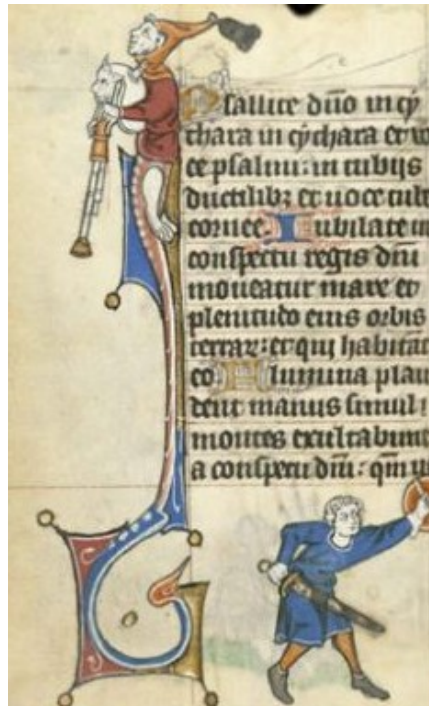 Psallite dño in cy
thara in cythara et uo
ce psalmi: in tubis
ductilibꝫ et uoce tube
cornee. Iubilate in
conspectu regis dñi
moueatur mare et
plenitudo eius orbis
terrar: et qui habitāt
eo Flumina plau
dent manus simul
montes exultabunt
a conspectu dñi: qm̄ u